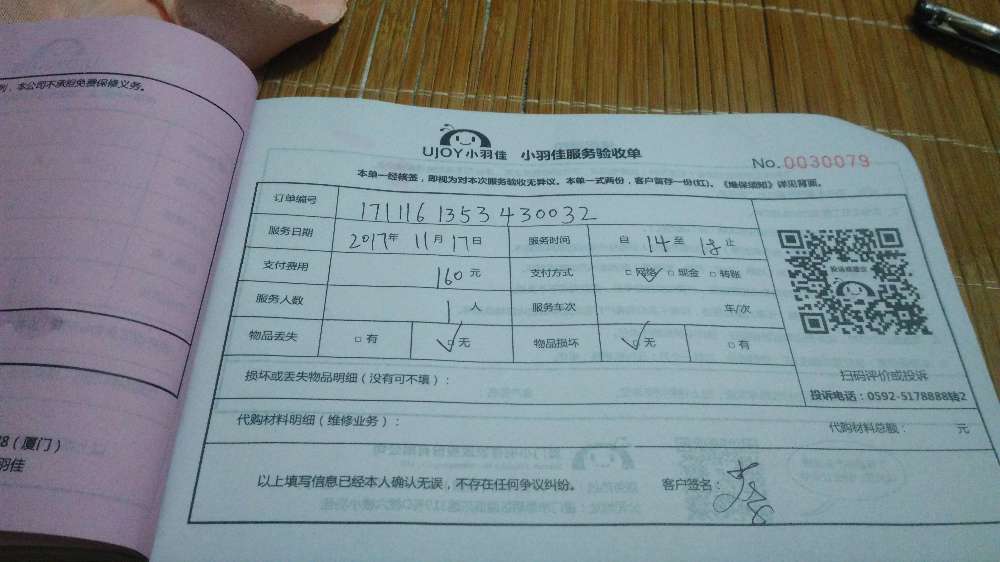 则，本公司不承担免费保修义务。
UJOY小羽佳 小羽佳服务验收单
No.0030079
本单一经核签，即视为对本次服务验收无异议。本单一式两份，客户留存一份(红)。《维保须知》详见背面。
订单编号 171116 1353 430032
服务日期 2017年 11月 17日 服务时间 自 14 至 18 止
支付费用 160 元 支付方式 □网络 □现金 □转账
服务人数 1 人 服务车次 车/次
物品丢失 □有 □无 物品损坏 □无 □有
扫码评价或投诉
投诉电话：0592-5178888转2
损坏或丢失物品明细（没有可不填）：
代购材料明细（维修业务）： 代购材料总额： 元
以上填写信息已经本人确认无误，不存在任何争议纠纷。 客户签名：
8（厦门）
羽佳